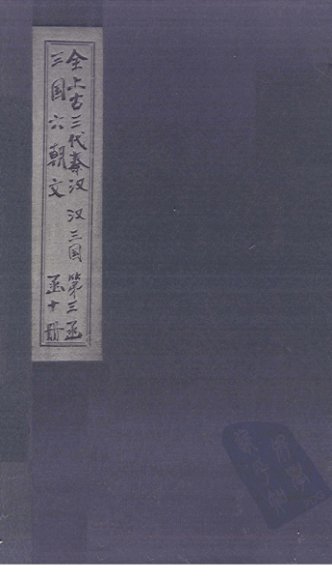 全上古三代秦汉 汉三国 第三函
三国六朝文 函十册